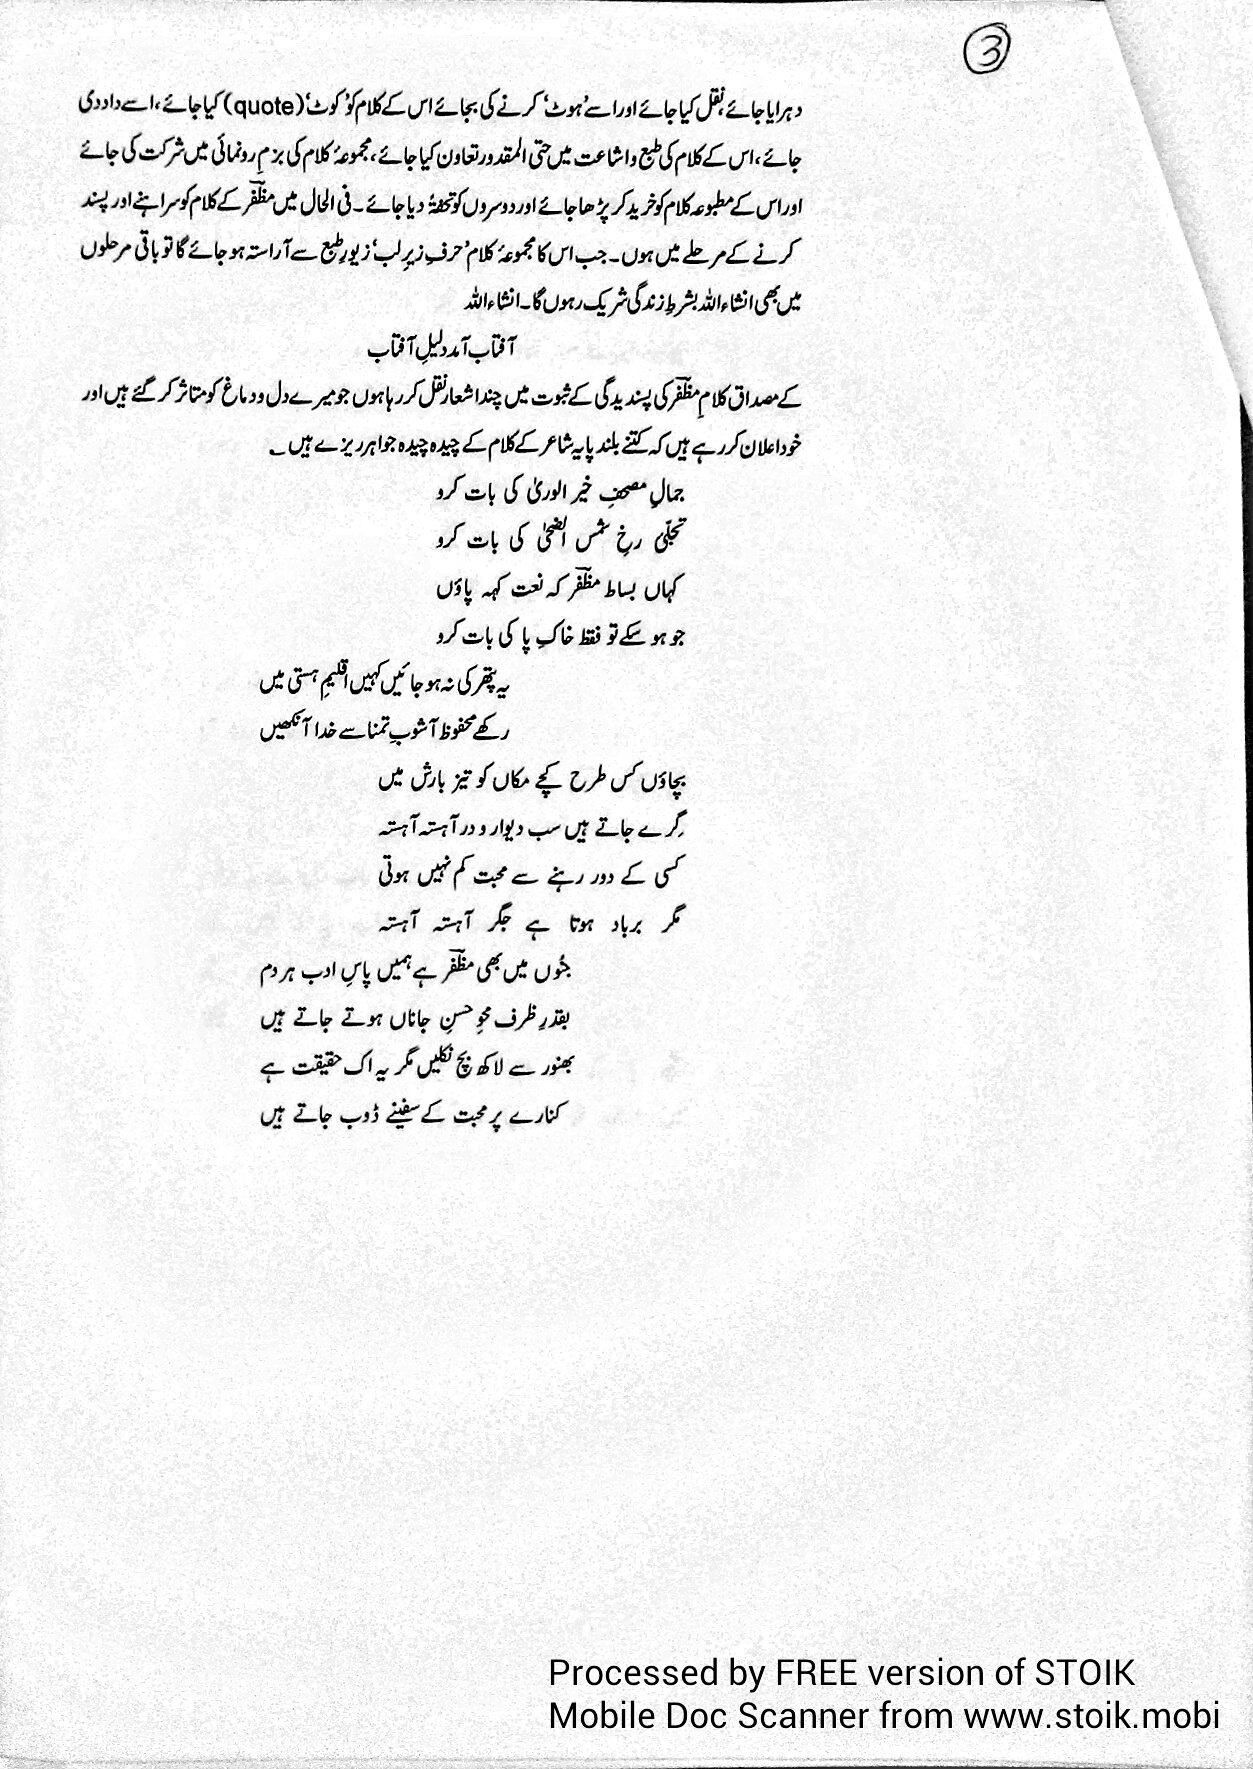 3
دہرایا جائے، نقل کیا جائے اور اسے ’ہوٹ‘ کرنے کی بجائے اس کے کلام کو ’کوٹ‘ (quote) کیا جائے، اسے داد دی
جائے، اس کے کلام کی طبع و اشاعت میں حتی المقدور تعاون کیا جائے، مجموعۂ کلام کی بزمِ رونمائی میں شرکت کی جائے
اور اس کے مطبوعہ کلام کو خرید کر پڑھا جائے اور دوسروں کو تحفۃً دیا جائے۔ فی الحال میں مظفرؔ کے کلام کو سراہنے اور پسند
کرنے کے مرحلے میں ہوں۔ جب اس کا مجموعۂ کلام ’حرفِ زیرِ لب‘ زیورِ طبع سے آراستہ ہو جائے گا تو باقی مرحلوں
میں بھی انشاء اللہ بشرطِ زندگی شریک رہوں گا۔ انشاء اللہ
آفتاب آمد دلیلِ آفتاب
کے مصداق کلامِ مظفرؔ کی پسندیدگی کے ثبوت میں چند اشعار نقل کر رہا ہوں جو میرے دل و دماغ کو متاثر کر گئے ہیں اور
خود اعلان کر رہے ہیں کہ کتنے بلند پایہ شاعر کے کلام کے چیدہ چیدہ جواہر ریزے ہیں ۔
جمالِ مصحفِ خیر الوریٰ کی بات کرو
تجلّیِ رخِ شمس الضحیٰ کی بات کرو
کہاں بساط مظفرؔ کہ نعت کہہ پاؤں
جو ہو سکے تو فقط خاکِ پا کی بات کرو
یہ پتھر کی نہ ہو جائیں کہیں اقلیمِ ہستی میں
رکھے محفوظ آشوبِ تمنا سے خدا آنکھیں
بچاؤں کس طرح کچے مکاں کو تیز بارش میں
گرے جاتے ہیں سب دیوار و در آہستہ آہستہ
کسی کے دور رہنے سے محبت کم نہیں ہوتی
مگر برباد ہوتا ہے جگر آہستہ آہستہ
جنُوں میں بھی مظفرؔ ہے ہمیں پاسِ ادب ہر دم
بقدرِ ظرف محوِ حسنِ جاناں ہوتے جاتے ہیں
بھنور سے لاکھ بچ نکلیں مگر یہ اک حقیقت ہے
کنارے پر محبت کے سفینے ڈوب جاتے ہیں
Processed by FREE version of STOIK
Mobile Doc Scanner from www.stoik.mobi